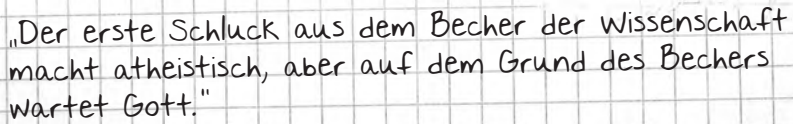 „Der erste Schluck aus dem Becher der Wissenschaft
macht atheistisch, aber auf dem Grund des Bechers
wartet Gott."